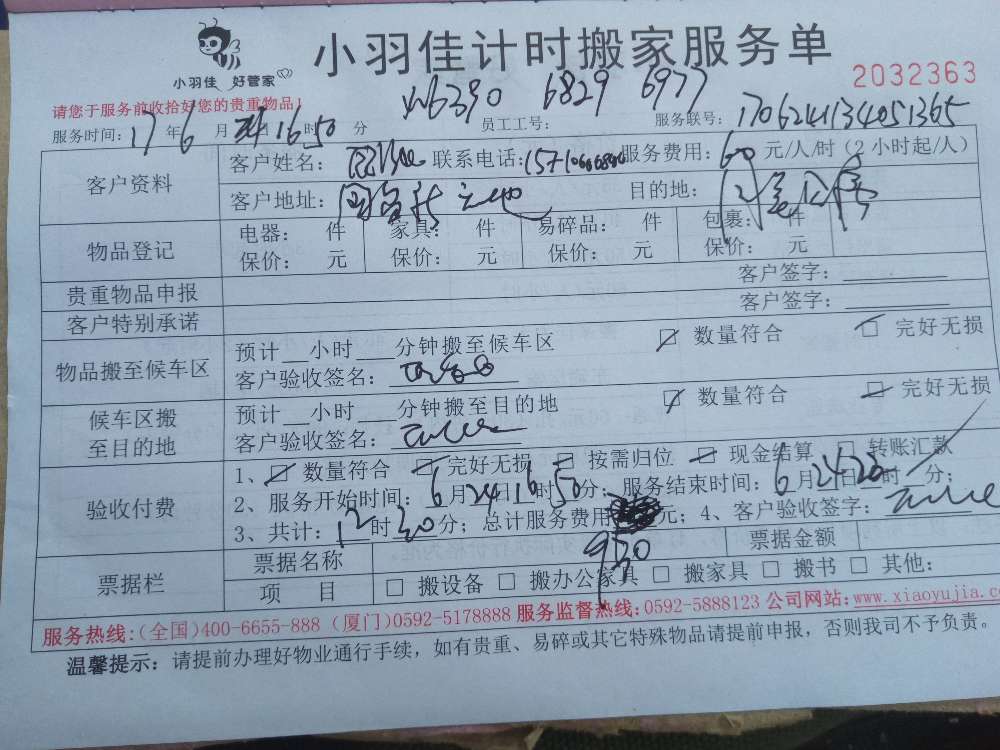 小羽佳 好管家
小羽佳计时搬家服务单
2032363
请您于服务前收拾好您的贵重物品!
6390 6829 6977
服务时间: 17 年 6 月 24 16 时 50 分 员工工号: 服务联号: 1706241134051365
客户资料 客户姓名: 联系电话: 服务费用: 60 元/人/时 (2小时起/人)
客户地址: 目的地:
物品登记 电器: 件 家具: 件 易碎品: 件 包裹: 件
保价: 元 保价: 元 保价: 元 保价: 元
贵重物品申报 客户签字:
客户特别承诺 客户签字:
物品搬至候车区 预计__小时___分钟搬至候车区 数量符合 完好无损
客户验收签名:
候车区搬至目的地 预计__小时___分钟搬至目的地 数量符合 完好无损
客户验收签名:
验收付费 1、数量符合 完好无损 按需归位 现金结算 转账汇款
2、服务开始时间: 6 月 24 日 16 时 50 分; 服务结束时间: 6 月 24 日 20 时 分;
3、共计: 时 30 分; 总计服务费用 元; 4、客户验收签字:
930
票据栏 票据名称 票据金额
项 目 □ 搬设备 □ 搬办公家具 □ 搬家具 □ 搬书 □ 其他:
服务热线:(全国)400-6655-888 (厦门)0592-5178888 服务监督热线:0592-5888123 公司网站:www.xiaoyujia.co
温馨提示: 请提前办理好物业通行手续,如有贵重、易碎或其它特殊物品请提前申报,否则我司不予负责。